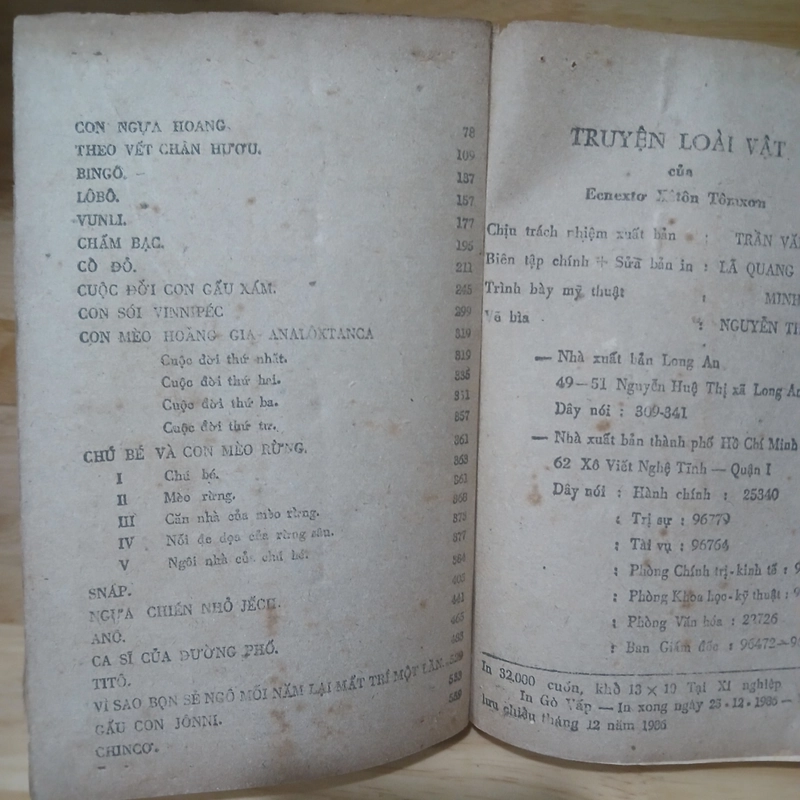 CON NGỰA HOANG. 78
THEO VẾT CHÂN HƯƠU. 109
BINGÔ. 137
LÔBÔ. 157
VUNLI. 177
CHẤM BẠC. 195
CỒ ĐỎ. 211
CUỘC ĐỜI CON GẤU XÁM. 245
CON SÓI VINNIPÉC 299
CON MÈO HOÀNG GIA ANALÔXTANCA 319
Cuộc đời thứ nhất. 319
Cuộc đời thứ hai. 335
Cuộc đời thứ ba. 351
Cuộc đời thứ tư. 357
CHÚ BÉ VÀ CON MÈO RỪNG. 361
I Chú bé. 363
II Mèo rừng.
III Căn nhà của mèo rừng.
IV Nỗi đe dọa của rừng sâu. 377
V Ngôi nhà của chú bé.
SNÁP.
NGỰA CHIẾN NHỎ JẾCH.
ANÔ.
CA SĨ CỦA ĐƯỜNG PHỐ.
TITÔ.
VÌ SAO BỌN SẺ NGÔ MỖI NĂM LẠI MẤT TRÍ MỘT LẦN.
GẤU CON JÔNNI.
CHINCƠ.
TRUYỆN LOÀI VẬT
của
Ecnextơ Tômxơn
Chịu trách nhiệm xuất bản : TRẦN
Biên tập chính + Sửa bản in : LÃ QUANG
Trình bày mỹ thuật : MINH
Vẽ bìa : NGUYỄN
— Nhà xuất bản Long An
49—51 Nguyễn Huệ Thị xã Long An
Dây nói : 309-341
— Nhà xuất bản thành phố Hồ Chí Minh
62 Xô Viết Nghệ Tĩnh — Quận I
Dây nói : Hành chính : 25340
: Trị sự : 96779
: Tài vụ : 96764
: Phòng Chính trị-kinh tế :
: Phòng Khoa học-kỹ thuật :
: Phòng Văn hóa : 22726
: Ban Giám đốc : 96472—
In 32,000 cuốn, khổ 13 × 19 Tại Xí nghiệp
In Gò Vấp — In xong ngày 25-12-1986 —
lưu chiểu tháng 12 năm 1986